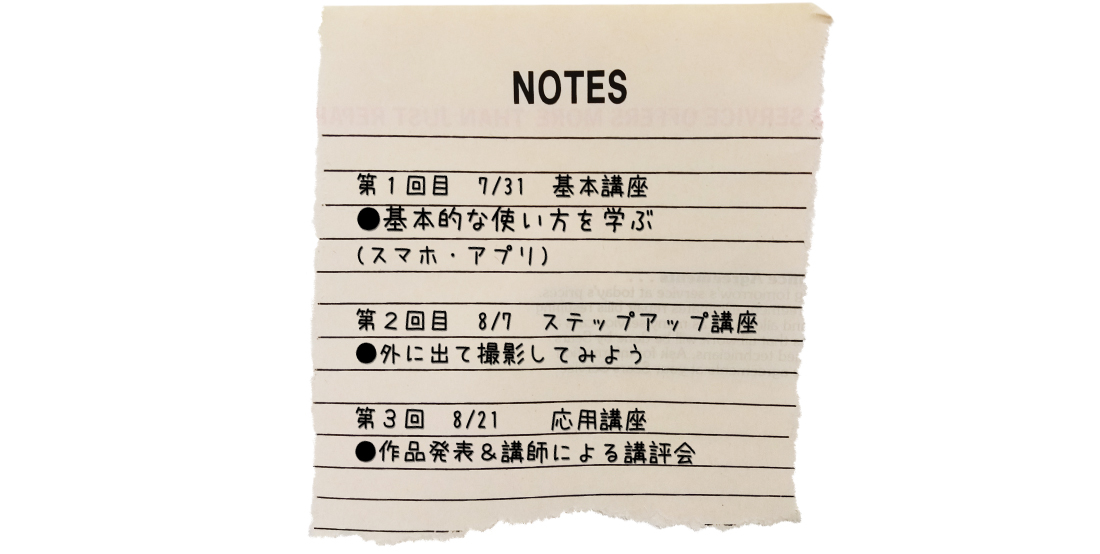 NOTES
第1回目　7/31　基本講座
●基本的な使い方を学ぶ
(スマホ・アプリ)
第2回目　8/7　ステップアップ講座
●外に出て撮影してみよう
第3回　8/21　　応用講座
●作品発表＆講師による講評会